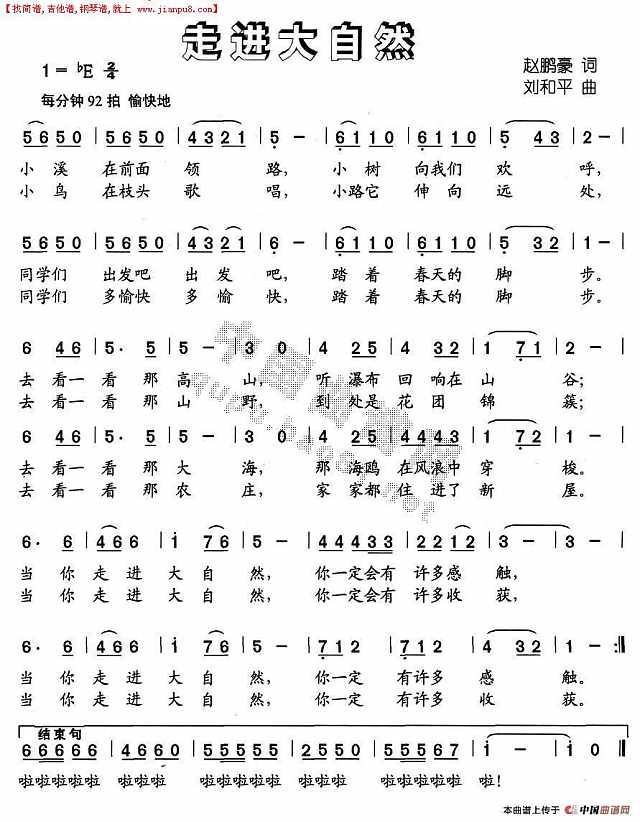 【找简谱,吉他谱,钢琴谱,就上 www.jianpu8.com】
走进大自然
1=♭E 2/4
赵鹏豪 词
刘和平 曲
每分钟92拍 愉快地
5 6 5 0 | 5 6 5 0 | 4 3 2 1 | 5 - | 6 1 1 0 | 6 1 1 0 | 5 4 3 | 2 - |
小溪 在前面 领 路, 小树 向我们 欢 呼,
小鸟 在枝头 歌 唱, 小路它 伸向 远 处,
5 6 5 0 | 5 6 5 0 | 4 3 2 1 | 6 - | 6 1 1 0 | 6 1 1 0 | 5 3 2 | 1 - |
同学们 出发吧 出 发 吧, 踏着 春天的 脚 步。
同学们 多愉快 多 愉 快, 踏着 春天的 脚 步。
6 4 6 | 5· 5 | 5 - | 3 0 | 4 2 5 | 4 3 2 | 1 7 1 | 2 - |
去 看一看 那高 山, 听 瀑布 回 响在 山 谷;
去 看一看 那山 野, 到 处是 花 团 锦 簇;
6 4 6 | 5· 5 | 5 - | 3 0 | 4 2 5 | 4 4 4 3 | 1 7 2 | 1 - |
去 看一看 那大 海, 那 海鸥 在风浪中 穿 梭。
去 看一看 那农 庄, 家 家都 住进了 新 屋。
6· 6 | 4 6 | i 7 6 | 5 - | 4 4 4 3 3 | 2 2 1 2 | 3 - | 3 - |
当 你 走 进 大 自 然, 你一定会有 许多感 触,
当 你 走 进 大 自 然, 你一定会有 许多收 获,
6· 6 | 4 6 | i 7 6 | 5 - | 7 1 2 | 7 1 2 | 4 3 2 | 1 - :‖
当 你 走 进 大 自 然, 你一定 有许多 感 触。
当 你 走 进 大 自 然, 你一定 有许多 收 获。
结束句
6 6 6 6 6 | 4 6 6 0 | 5 5 5 5 5 | 2 5 5 0 | 6 6 6 6 6 | 5 6 7 | i - | i 0 ‖
啦啦啦啦啦 啦啦啦 啦啦啦啦啦 啦啦啦 啦啦啦啦啦 啦啦啦 啦!
本曲谱上传于 中国曲谱网